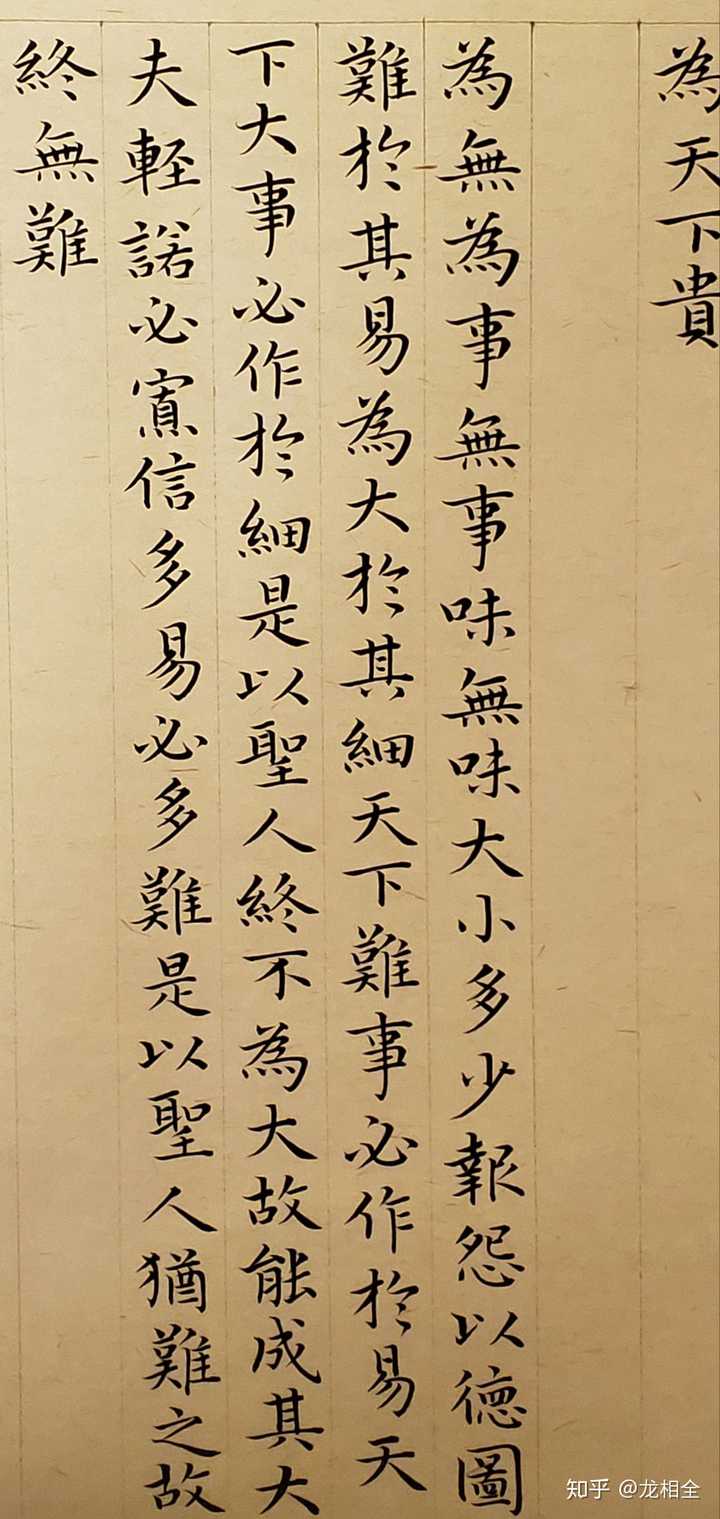 為天下貴
為無為事無事味無味大小多少報怨以德圖
難於其易為大於其細天下難事必作於易天
下大事必作於細是以聖人終不為大故能成其大
夫輕諾必寡信多易必多難是以聖人猶難之故
終無難
知乎 @龙相全